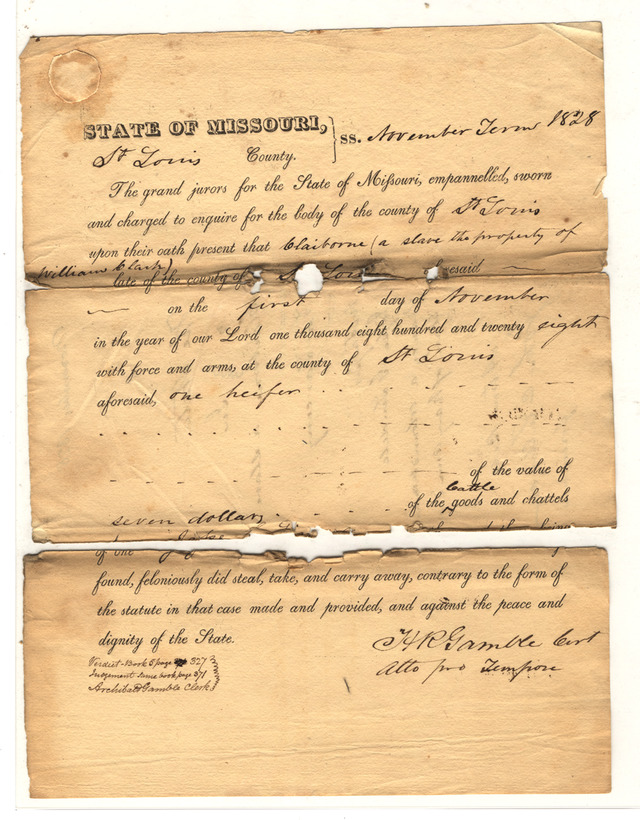 STATE OF MISSOURI, } ss. November Term 1828
St Louis County.
The grand jurors for the State of Missouri, empannelled, sworn
and charged to enquire for the body of the county of St Louis
upon their oath present that Claiborne (a slave the property of
William Clark)
late of the county of St Louis
on the first day of November
in the year of our Lord one thousand eight hundred and twenty eight
with force and arms, at the county of St Louis
aforesaid, one heifer
of the value of
cattle
of the goods and chattels
seven dollars
of one
found, feloniously did steal, take, and carry away, contrary to the form of
the statute in that case made and provided, and against the peace and
dignity of the State.
HR Gamble Cirt
Atto pro Tempore
Verdict - Book 5 page 327
Judgement same book page 371
Archibald Gamble Clerk